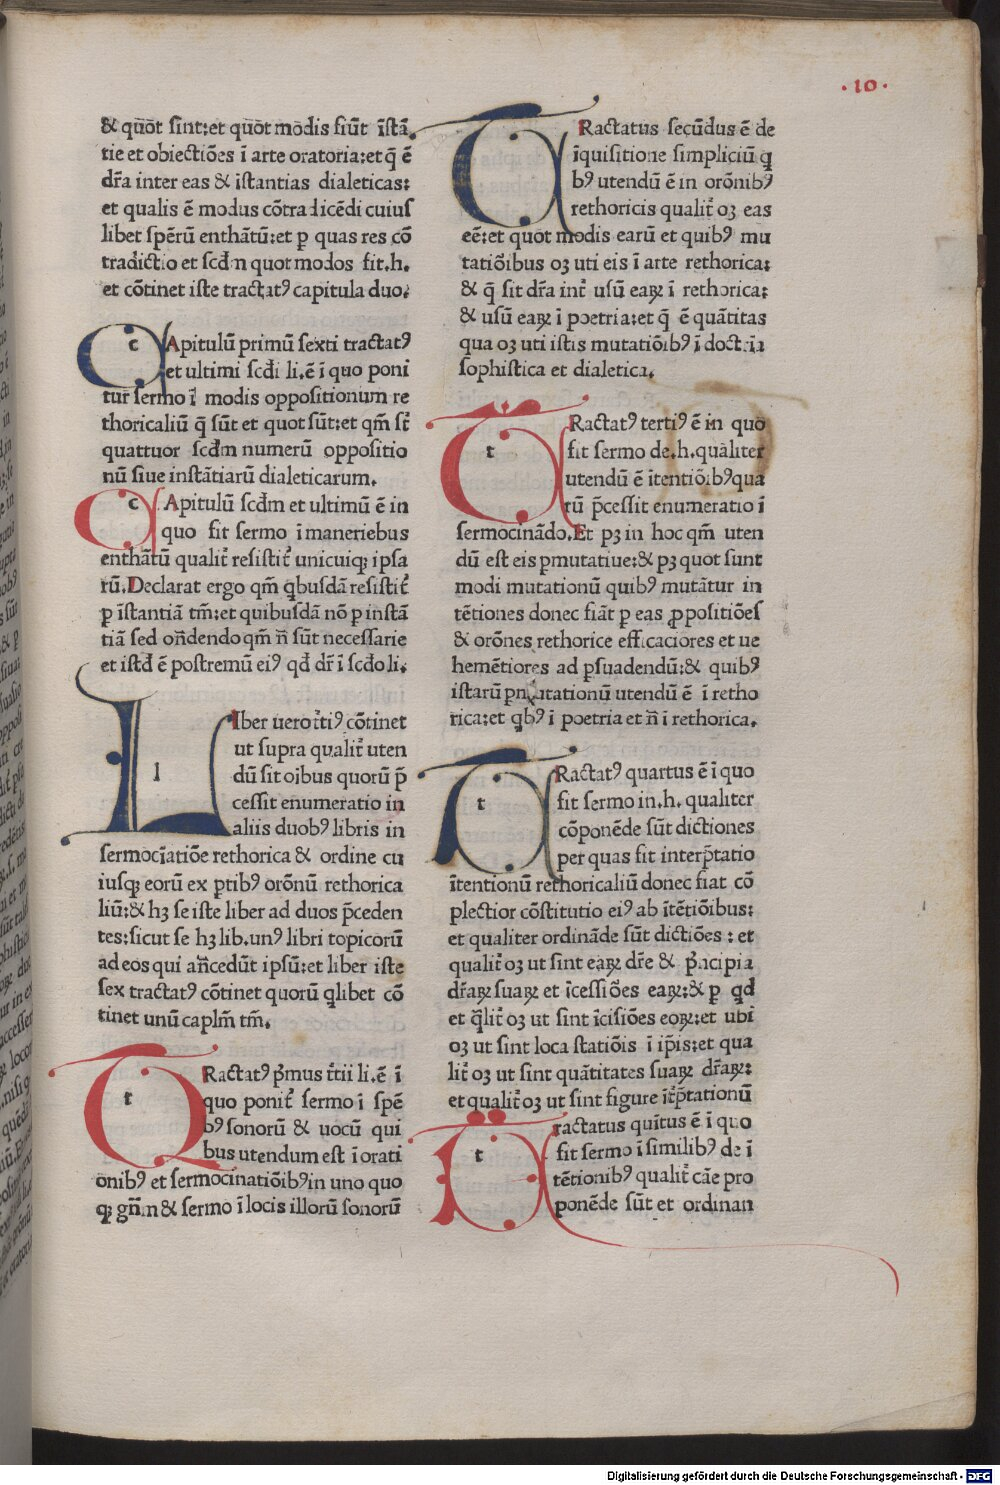 ·10·
& quōt sint:et quōt modis fiūt īstā
tie et obiectiōes ī arte oratoria:et q̄ ē
dr̄a inter eas & īstantias dialeticas:
et qualis ē modus cōtradicēdi cuius
libet spērū enthātū:et ꝑ quas res cō
tradictio et scd̄m quot modos fit.h.
et cōtinet iste tractatꝰ capitula duo.
c Apitulū primū sexti tractatꝰ
et ultimi scd̄i li.ē ī quo poni
tur sermo ī modis oppositionum re
thoricaliū q̄ sūt et quot sūt:et qm̄ st̄
quattuor scd̄m numerū oppositio
nū siue instātiarū dialeticarum.
c Apitulū scd̄m et ultimū ē in
quo fit sermo ī maneriebus
enthātū qualit̄ resistit̄ unicuiqꝫ ipsa
rū.Declarat ergo qm̄ qbusdā resistit̄
ꝑ īstantiā tm̄:et quibusdā nō ꝑ instā
tiā sed on̄dendo qm̄ n̄ sūt necessarie
et istd̄ ē postremū eiꝰ qd̄ dr̄ ī scd̄o li.
l Iber uero t̄tiꝰ cōtinet
ut supra qualit̄ uten
dū sit oībus quorū p̄
cessit enumeratio in
aliis duobꝰ libris in
sermocīatiōe rethorica & ordine cu
iusqꝫ eorū ex ꝑtibꝰ orōnū rethorica
liū:& hꝫ se iste liber ad duos p̄ceden
tes:sicut se hꝫ lib.unꝰ libri topicorū
ad eos qui an̄cedūt ipsū:et liber iste
sex tractatꝰ cōtinet quorū qlibet cō
tinet unū caplm̄ tm̄.
t Ractatꝰ pͥmus t̄tii li.ē ī
quo ponit̄ sermo ī spē
bꝰ sonorū & uocū qui
bus utendum est ī orati
onibꝰ et sermocinatiōibꝰ in uno quo
qꝫ gn̄m & sermo ī locis illorū sonorū
Ractatus secūdus ē de
īquisitione simpliciū q
bꝰ utendū ē in orōnibꝰ
rethoricis qualit̄ oꝫ eas
eē:et quot modis earū et quibꝰ mu
tatiōibus oꝫ uti eis ī arte rethorica:
& q̄ sit dr̄a int̄ usū eaꝝ ī rethorica:
& usū eaꝝ ī poetria:et q̄ ē quātitas
qua oꝫ uti istis mutatiōibꝰ ī doctria
sophistica et dialetica.
t Ractatꝰ tertiꝰ ē in quo
fit sermo de.h.qualiter
utendū ē ītentiōibꝰqua
rū p̄cessit enumeratio ī
sermocināđo.Et pꝫ in hoc qm̄ uten
dū est eis pmutatiue:& pꝫ quot sunt
modi mutationū quibꝰ mutātur in
tētiones donec fiāt ꝑ eas ꝓpositiōes
& orōnes rethorice efficaciores et ue
hemētiores ad ꝑsuadendū:& quibꝰ
istarū ꝑmutationū utendū ē ī retho
rica:et qbꝰ ī poetria et n̄ ī rethorica.
t Ractatꝰ quartus ē ī quo
fit sermo in.h. qualiter
cōponēde sūt dictiones
per quas fit interp̄tatio
ītentionū rethoricaliū donec fiat cō
plectior cōstitutio eiꝰ ab ītētiōibus:
et qualiter ordināde sūt dictiōes : et
qualit̄ oꝫ ut sint eaꝝ dr̄e & pͥncipia
dr̄aꝝ suaꝝ et īcessiōes eaꝝ:& ꝑ qd
et q̄lit̄ oꝫ ut sint īcisiōes eoꝝ:et ubi
oꝫ ut sint loca statiōis ī ip̄is:et qua
lit̄ oꝫ ut sint quātitates suaꝝ dr̄aꝝ:
et qualit̄ oꝫ ut sint figure īt̄p̄tationū
t ractatus quītus ē ī quo
fit sermo ī similibꝰ de ī
tētionibꝰ qualit̄ cāe pro
ponēde sūt et ordinan
Digitalisierung gefördert durch die Deutsche Forschungsgemeinschaft - DFG